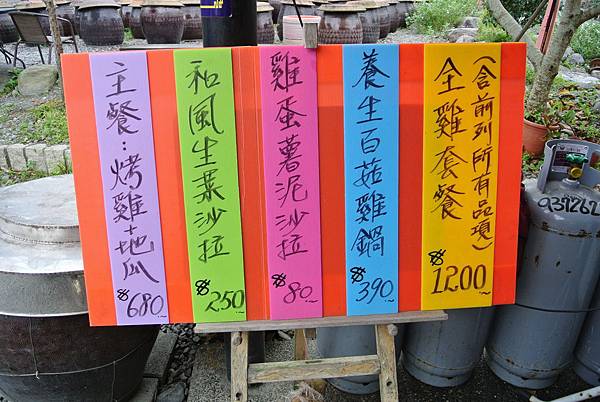 主餐:烤雞+地瓜
$680
和風生菜沙拉
$250
雞蛋薯泥沙拉
$80
養生百菇雞鍋
$390
全雞套餐
(含前列所有品項)
$1200